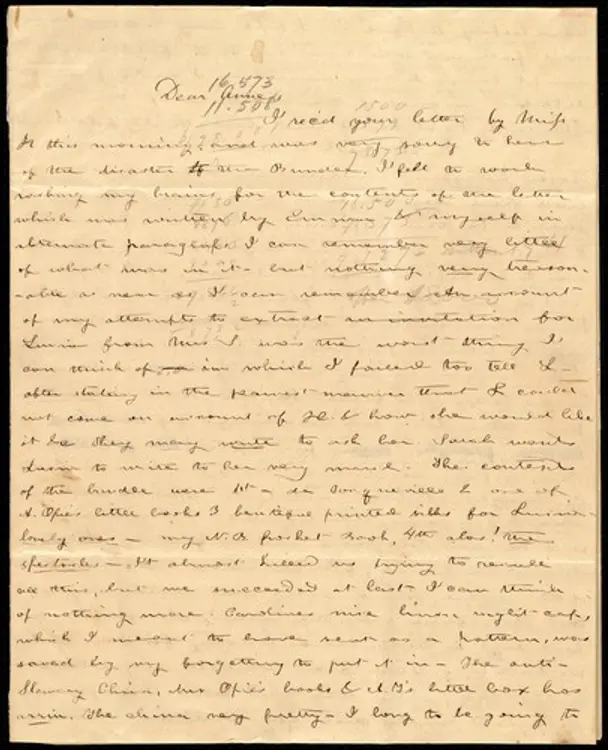 16.573
Dear Anne
11.508
I rec'd your letter by Miss
H this morning, and was very sorry to hear
of the disaster to the Bundle. I fell to work
rocking my brains for the contents of the letter
which was written by Emma & myself in
alternate paragraphs I can remember very little
of what was in it - but nothing very treason-
-able as near as I can remember An account
of my attempts to extract an invitation for
Lucia from Mrs L was the worst thing I
can think of in which I failed too tell L-
after stating in the manner that L could
not come on account of H. & how she would like
it be they may write to ask her. Sarah wants
Lucia to write to her very much. The contents
of the bundle were 1st a de Tocqueville 2 one of
A. Opie's little books 3 beautiful printed silks for Lucia
lovely ones - my N.B. Pocket Book, 4th alas! the
spectacles - It almost killed us trying to recall
all this, but we succeeded at last I can think
of nothing more. Caroline's nice linen night-cap,
which I meant to have sent as a pattern, was
saved by my forgetting to put it in - The anti-
Slavery China, Mrs Opie's books & A.T's little box has
arriv. The china very pretty - I long to be going to